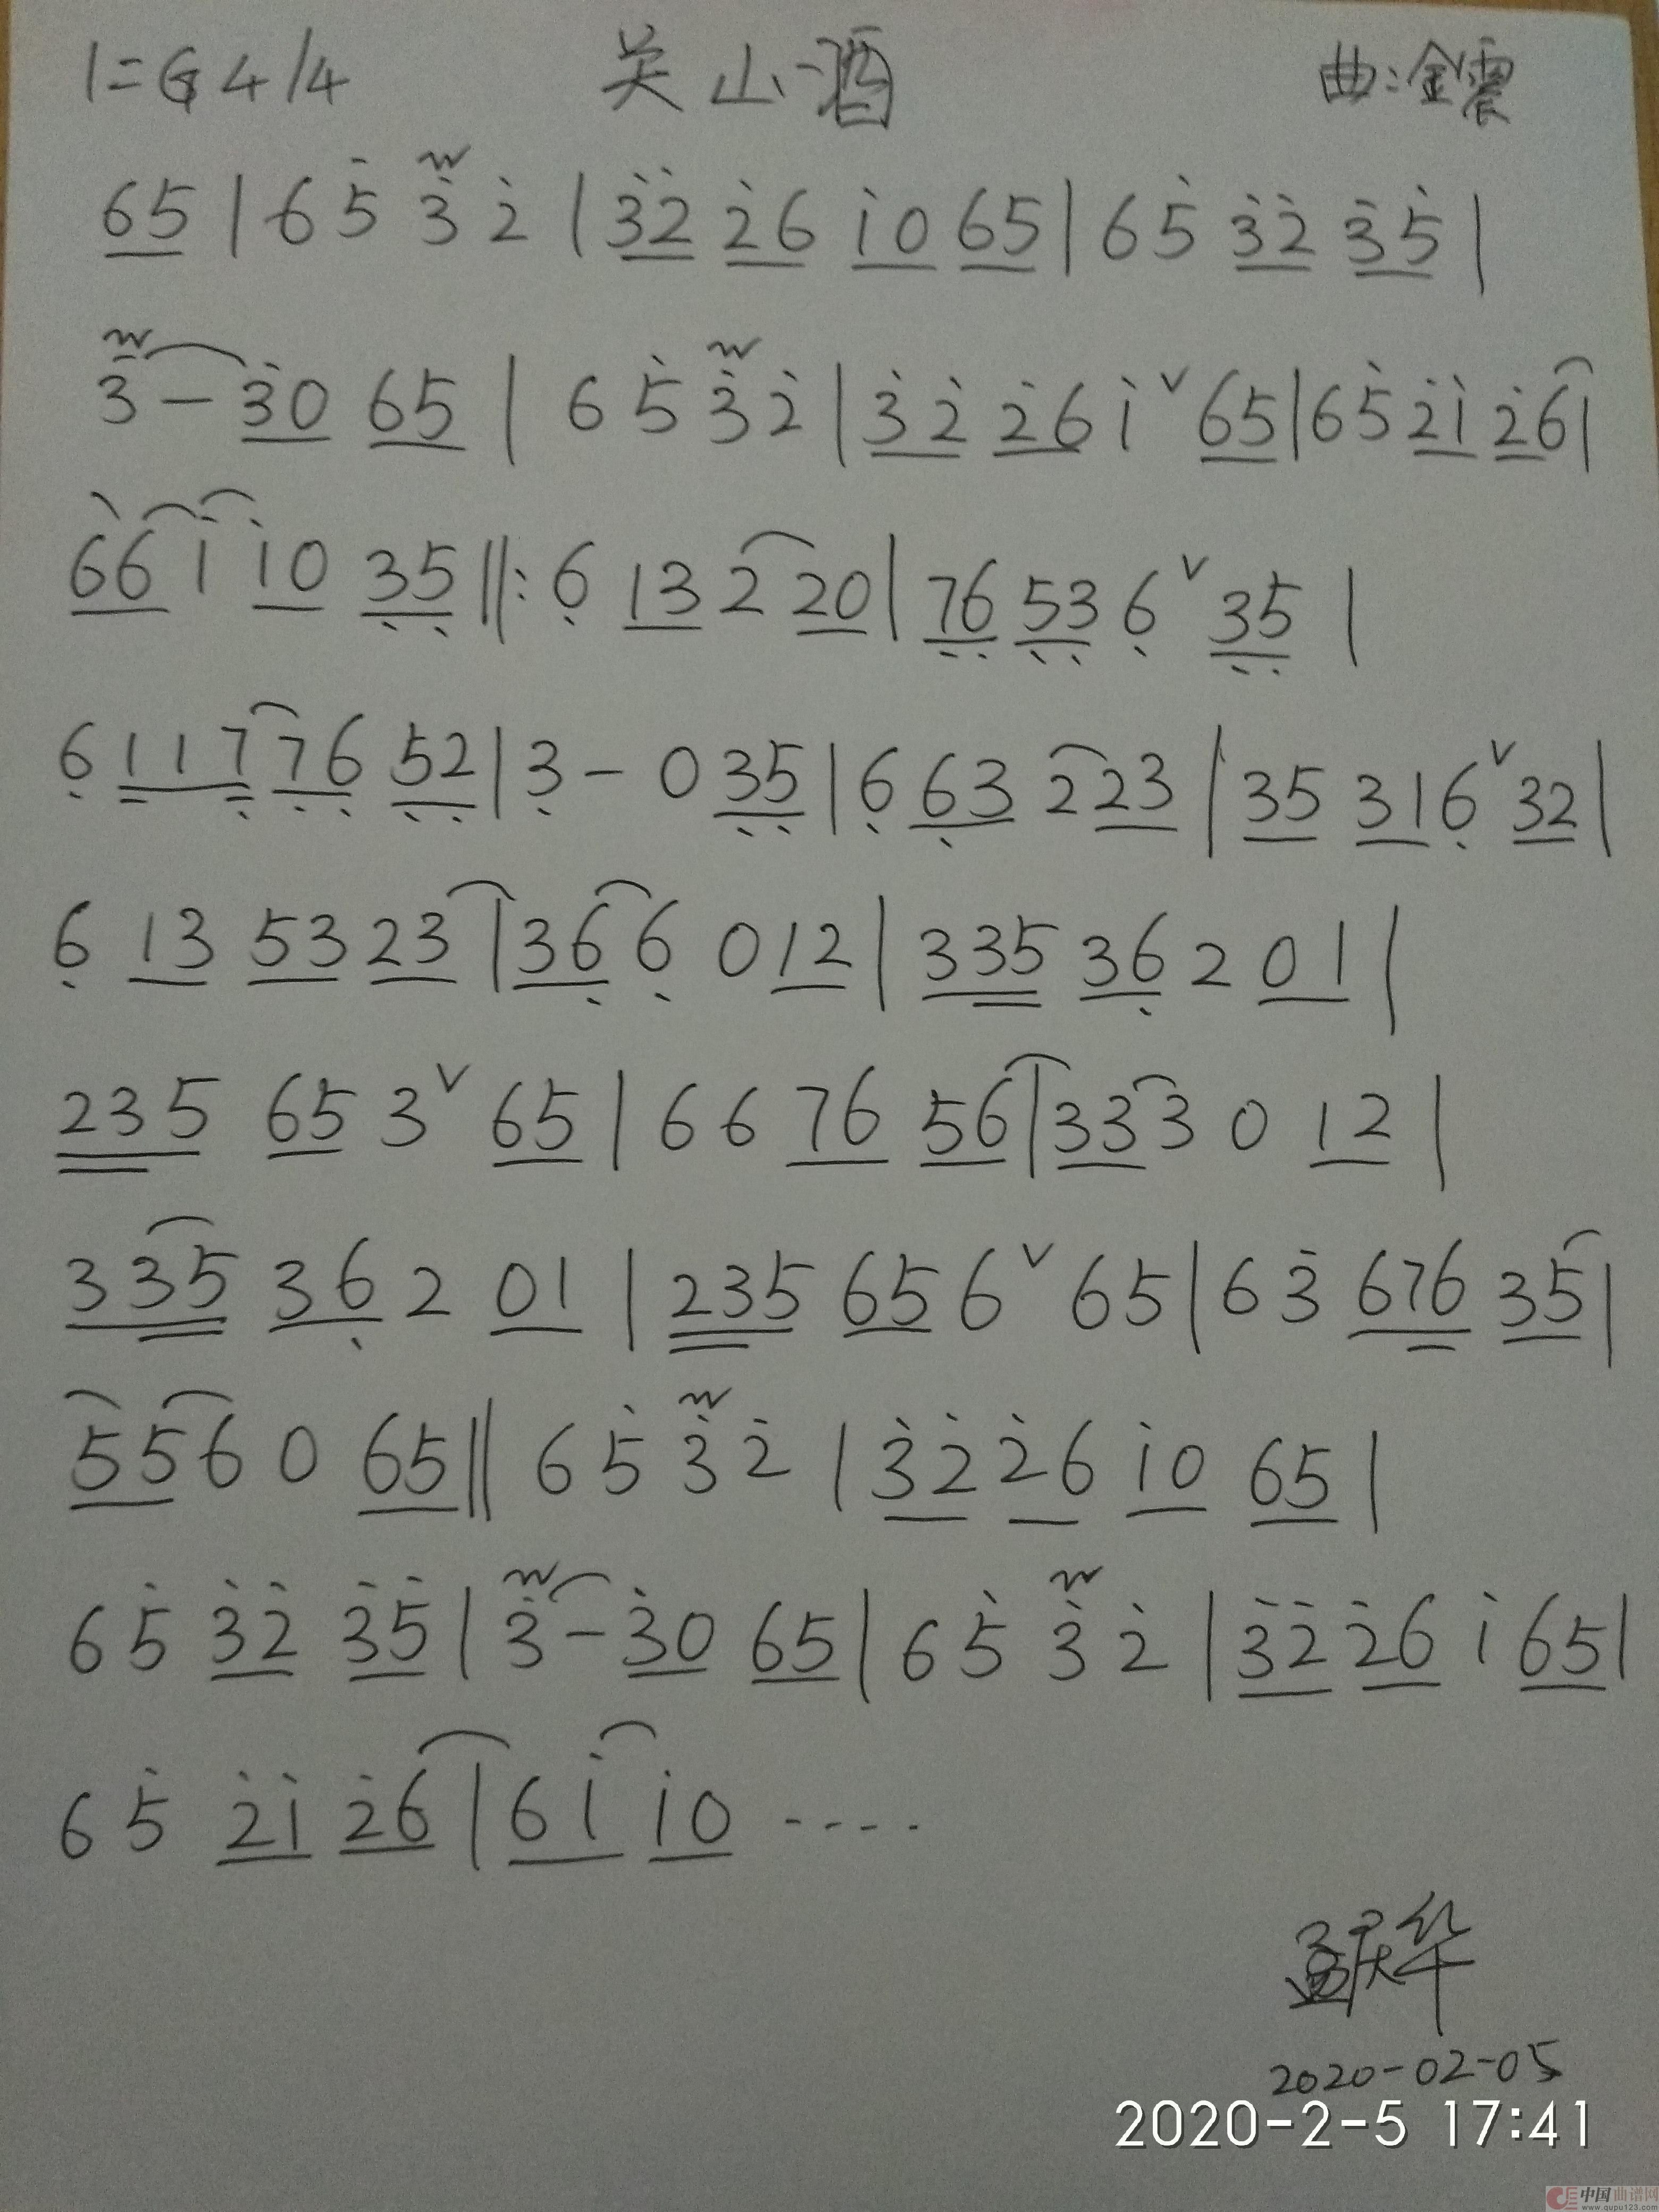 1=G 4/4 关山酒 曲:金震
65 | 6 5̇ 3̇ 2̇ | 3̇2̇ 2̇6 1̇0 65 | 6 5̇ 3̇2̇ 3̇5̇ |
3̇ — 3̇0 65 | 6 5̇ 3̇ 2̇ | 3̇2̇ 2̇6 1̇ ∨ 65 | 6 5̇ 2̇1̇ 2̇6 |
66 1̇ 1̇0 3̣5̣ ‖: 6̣ 13 2 20 | 7̣6̣ 5̣3̣ 6̣ ∨ 3̣5̣ |
6̣ 117̣ 7̣6̣ 5̣2̣ | 3̣ — 0 3̣5̣ | 6̣ 6̣3 2 23 | 35 31 6̣ ∨ 32 |
6̣ 13 53 23 | 36̣ 6̣ 0 12 | 335 36̣ 2 01 |
235 65 3 ∨ 65 | 6 6 76 56 | 33 3 0 12 |
335 36̣ 2 01 | 235 65 6 ∨ 65 | 6 3̇ 676 35 |
55 6 0 65 ‖ 6 5̇ 3̇ 2̇ | 3̇2̇ 2̇6 1̇0 65 |
6 5̇ 3̇2̇ 3̇5̇ | 3̇ — 3̇0 65 | 6 5̇ 3̇ 2̇ | 3̇2̇ 2̇6 1̇ 65 |
6 5̇ 2̇1̇ 2̇6 | 61̇ 1̇0 ····
华
2020-02-05
2020-2-5 17:41
中国曲谱网
www.qupu123.com